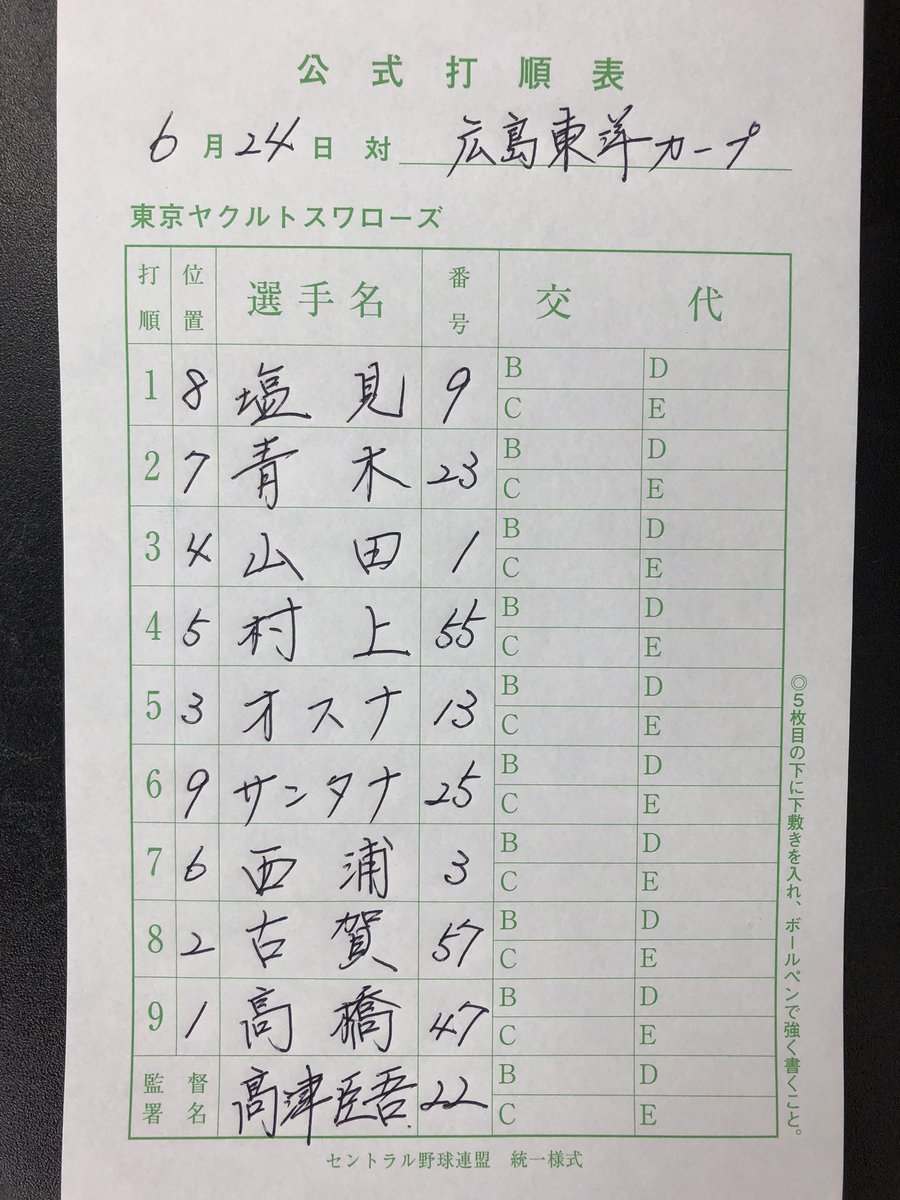 公式打順表
6月24日 対 広島東洋カープ
東京ヤクルトスワローズ
打順 位置 選手名 番号 交代
1 8 塩見 9 B D
C E
2 7 青木 23 B D
C E
3 4 山田 1 B D
C E
4 5 村上 55 B D
C E
5 3 オスナ 13 B D
C E
6 9 サンタナ 25 B D
C E
7 6 西浦 3 B D
C E
8 2 古賀 57 B D
C E
9 1 高橋 47 B D
C E
監督署名 高津臣吾 22 B D
C E
◎5枚目の下に下敷きを入れ、ボールペンで強く書くこと。
セントラル野球連盟 統一様式